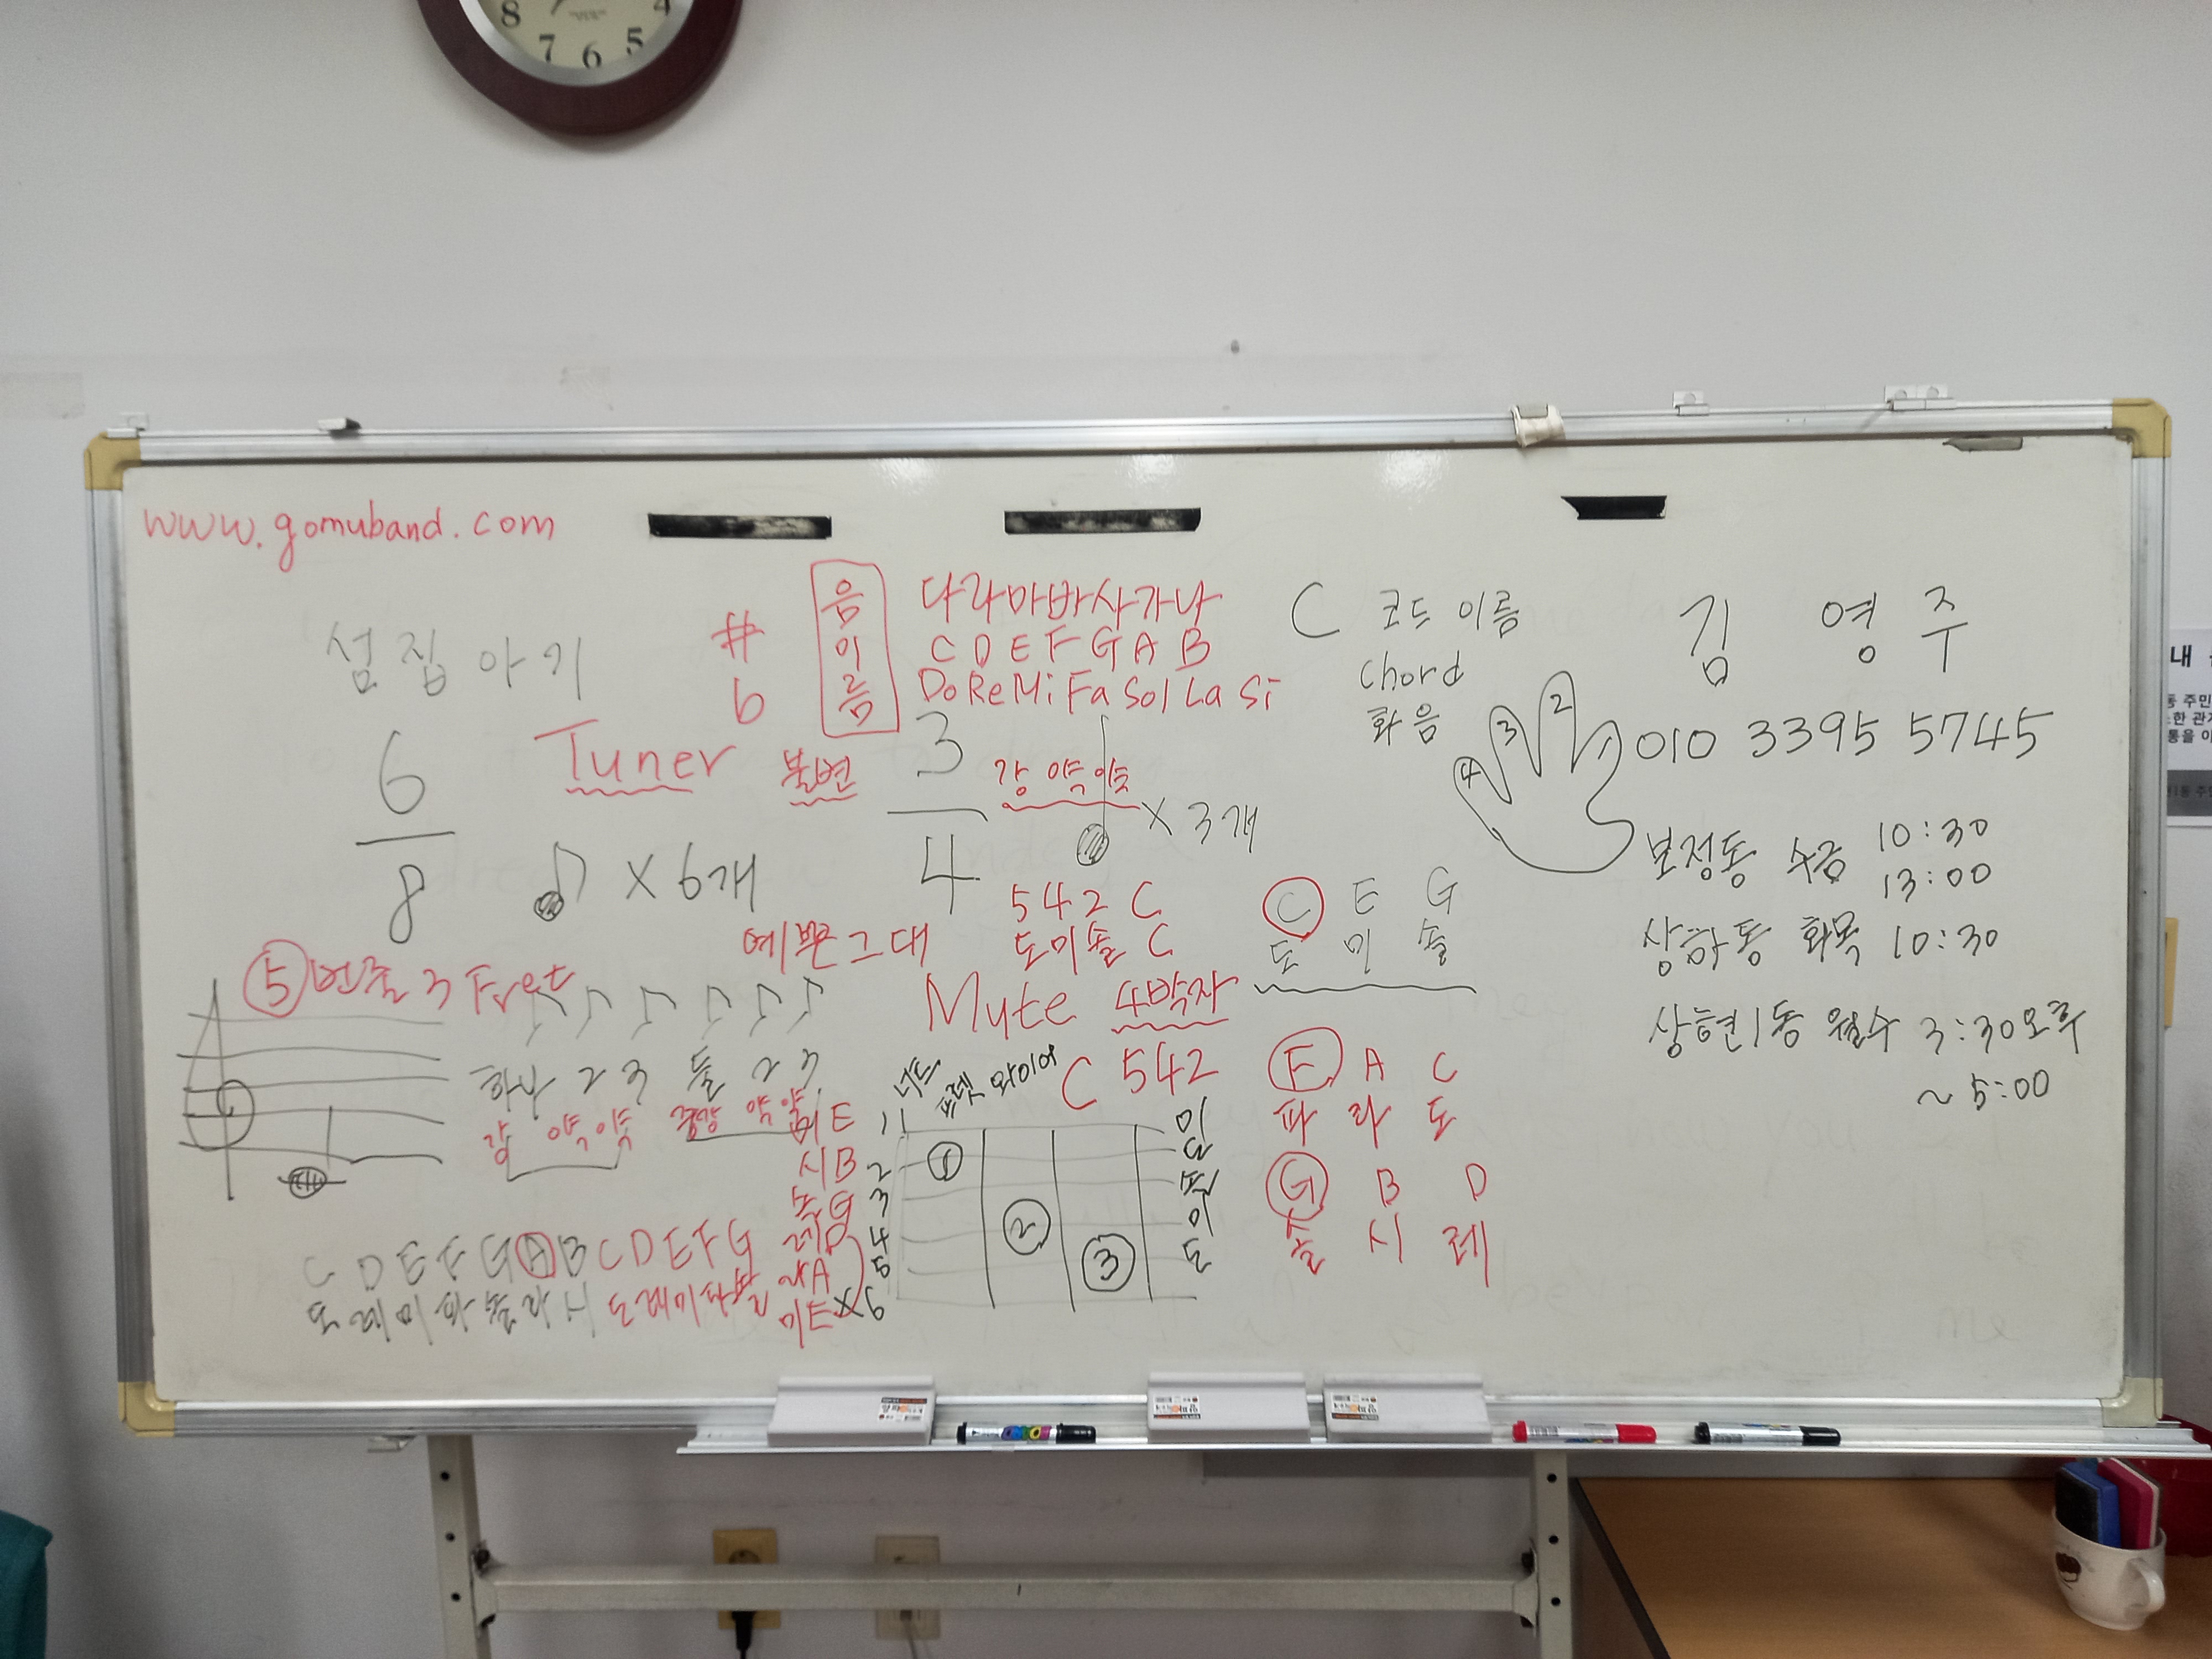 8 7 6 5 4
www.gomuband.com
섬집아기
6
8
× 6개
Tuner
#
b
음이름
다라마바사가나
C D E F G A B
Do Re Mi Fa Sol La Si
불변
3
4
강 약 약
× 3개
C 코드 이름
chord
화음
김 영 주
010 3395 5745
1 2 3 4
보정동 수금 10:30
13:00
상하동 화목 10:30
상현1동 월수 3:30오후
~ 5:00
예쁜그대
5 4 2 C
도미솔 C
C E G
도 미 솔
⑤번줄 3 Fret
Mute 4박자
C 542
하나 2 3 둘 2 3
강 약약 중강 약약
너트
프렛 와이어
미E 1
시B 2
솔G 3
레D 4
라A 5
미E × 6
① ② ③
미
도
솔
미
도
F A C
파 라 도
G B D
솔 시 레
C D E F G A B C D E F G
도레미파솔라시 도레미파솔
내
동 주민